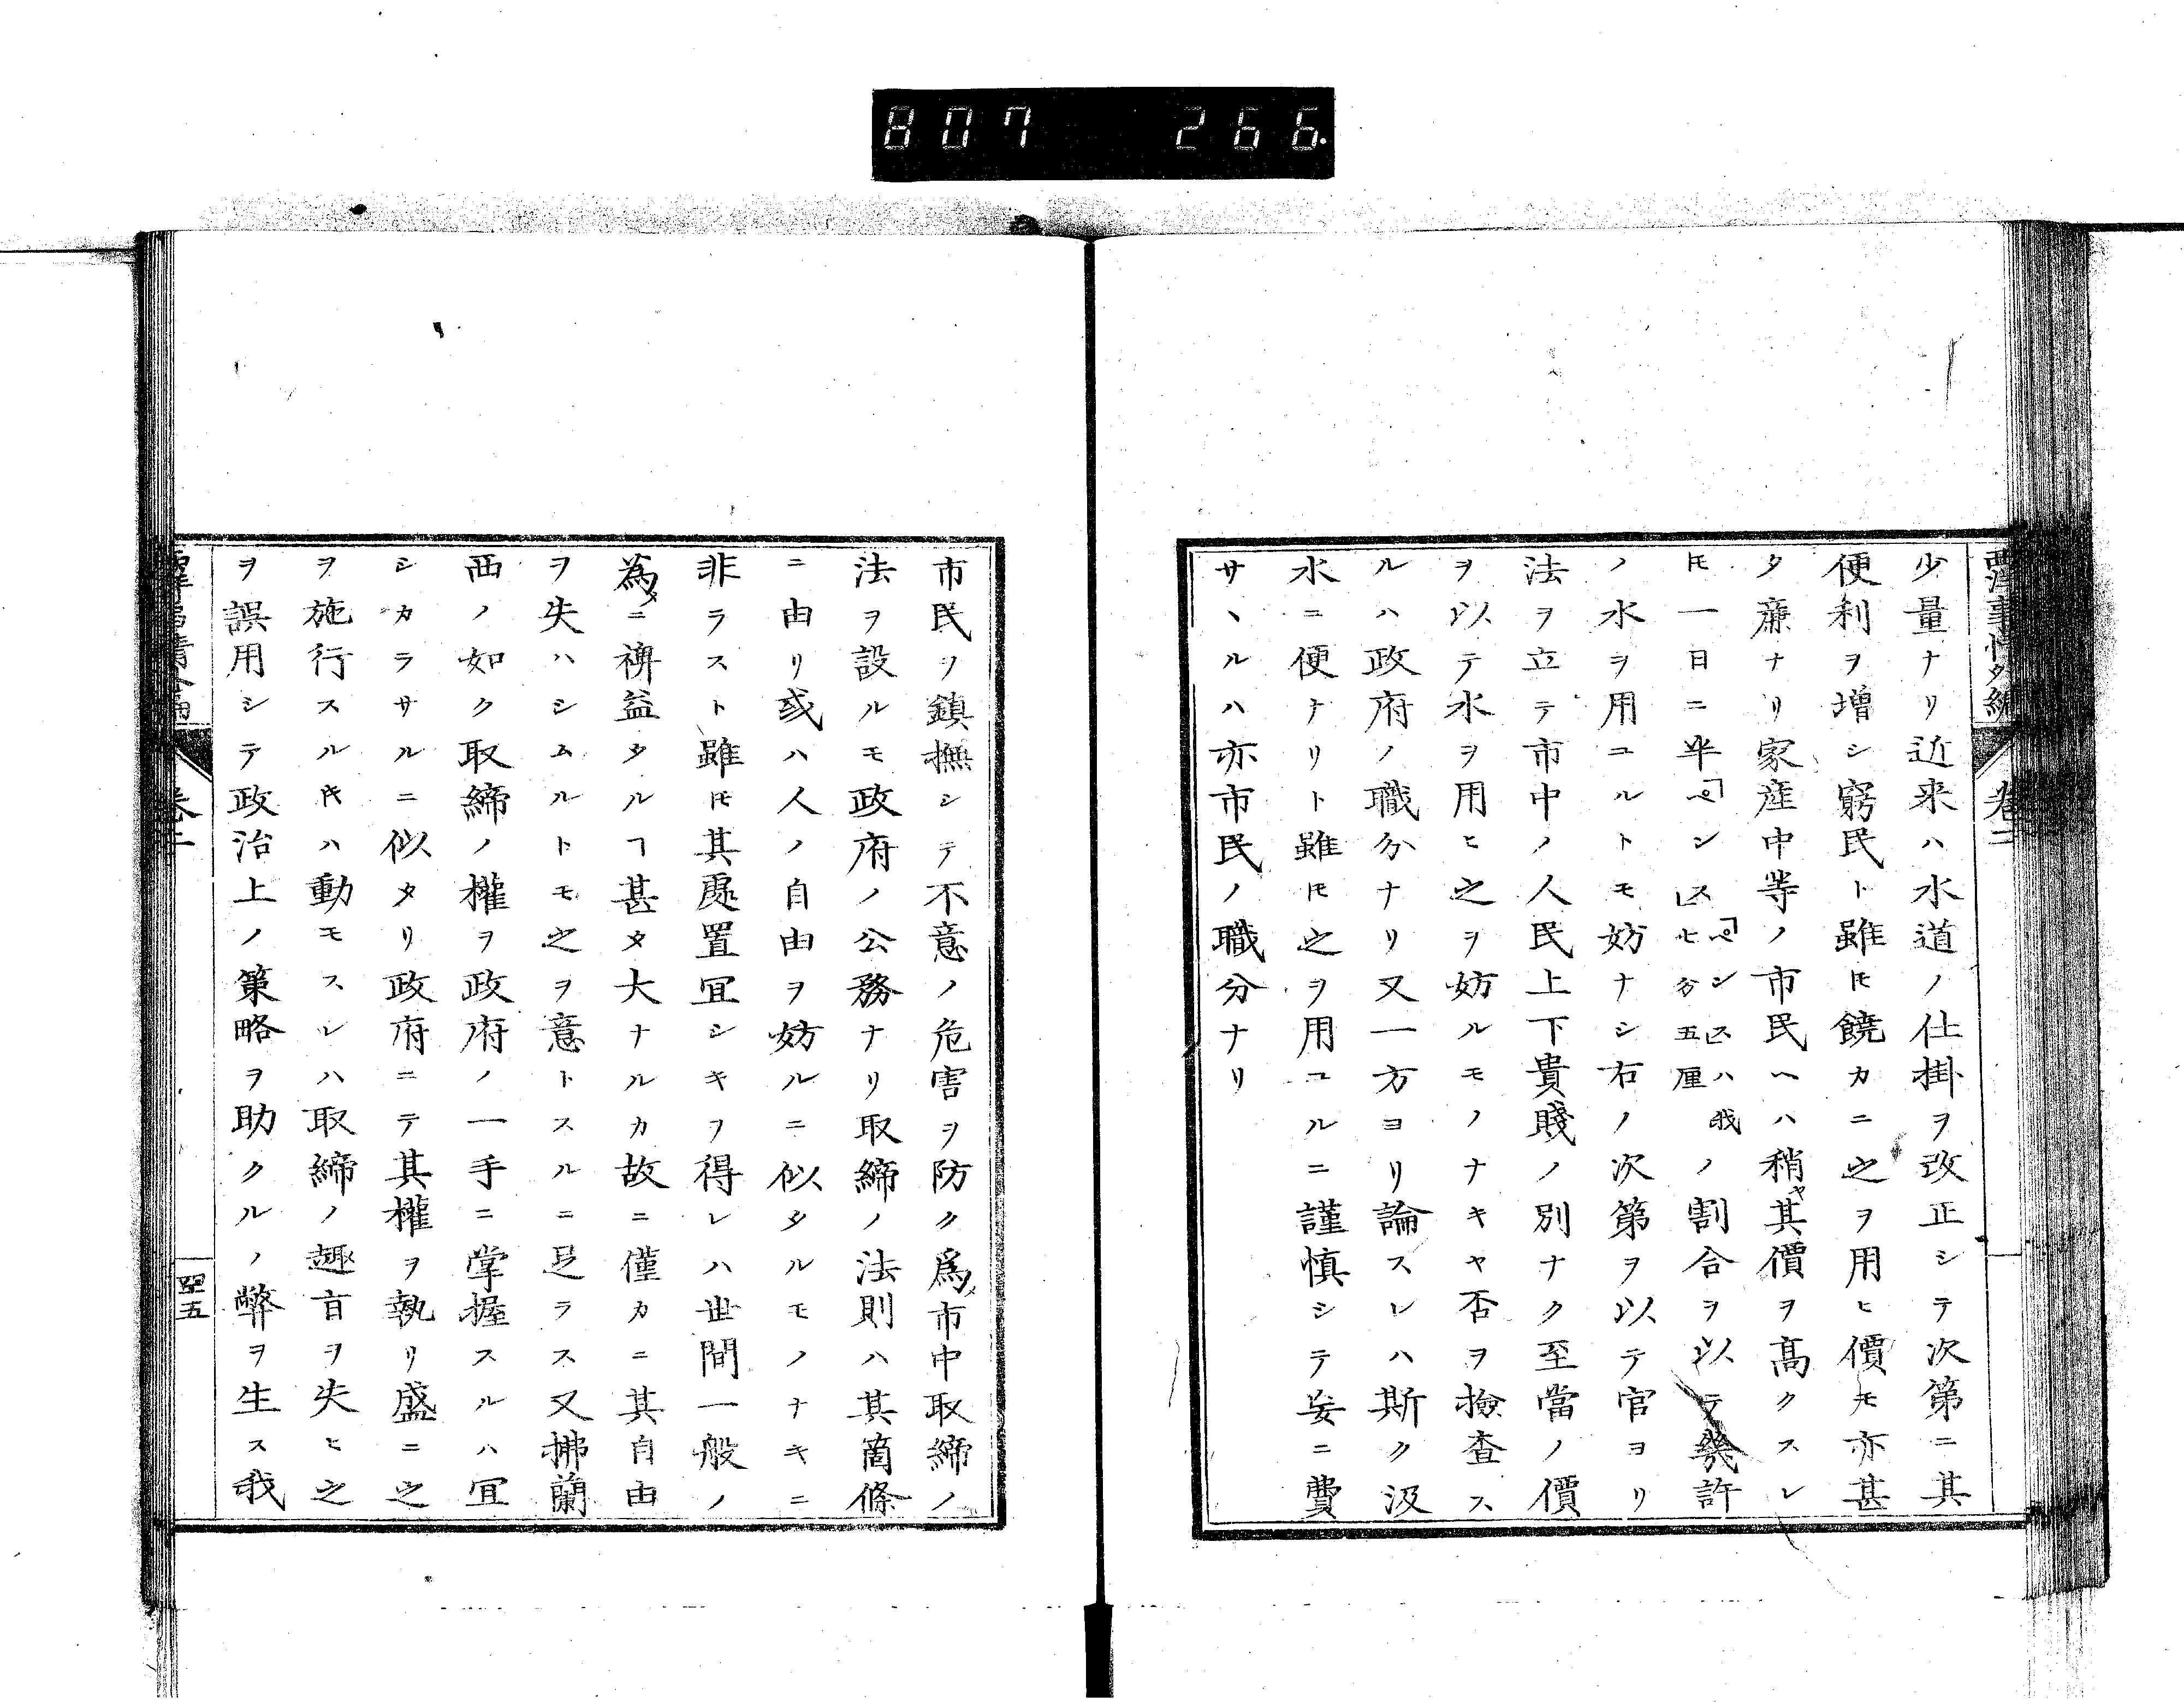 807 266
西洋事情外編 卷二
少量ナリ近来ハ水道ノ仕掛ヲ改正シテ次第ニ其
便利ヲ増シ窮民ト雖𪜈饒カニ之ヲ用ヒ價モ亦甚
タ廉ナリ家産中等ノ市民ヘハ稍ヤ其價ヲ高クスレ
𪜈一日ニ半「ペンス」「ペンス」ハ我七分五厘ノ割合ヲ以テ幾許
ノ水ヲ用ユルトモ妨ナシ右ノ次第ヲ以テ官ヨリ
法ヲ立テ市中ノ人民上下貴賤ノ別ナク至當ノ價
ヲ以テ水ヲ用ヒ之ヲ妨ルモノナキヤ否ヲ撿査ス
ルハ政府ノ職分ナリ又一方ヨリ論スレハ斯ク汲
水ニ便ナリト雖𪜈之ヲ用ユルニ謹慎シテ妄ニ費
サヽルハ亦市民ノ職分ナリ
市民ヲ鎮撫シテ不意ノ危害ヲ防ク爲メ市中取締ノ
法ヲ設ルモ政府ノ公務ナリ取締ノ法則ハ其箇條
ニ由リ或ハ人ノ自由ヲ妨ルニ似タルモノナキニ
非ラスト雖𪜈其處置冝シキヲ得レハ世間一般ノ
為メニ裨益タルヿ甚タ大ナルカ故ニ僅カニ其自由
ヲ失ハシムルトモ之ヲ意トスルニ足ラス又拂蘭
西ノ如ク取締ノ權ヲ政府ノ一手ニ掌握スルハ冝
シカラサルニ似タリ政府ニテ其權ヲ執リ盛ニ之
ヲ施行スル𪜈ハ動モスレハ取締ノ趣旨ヲ失ヒ之
ヲ誤用シテ政治上ノ策略ヲ助クルノ弊ヲ生ス我
卷二